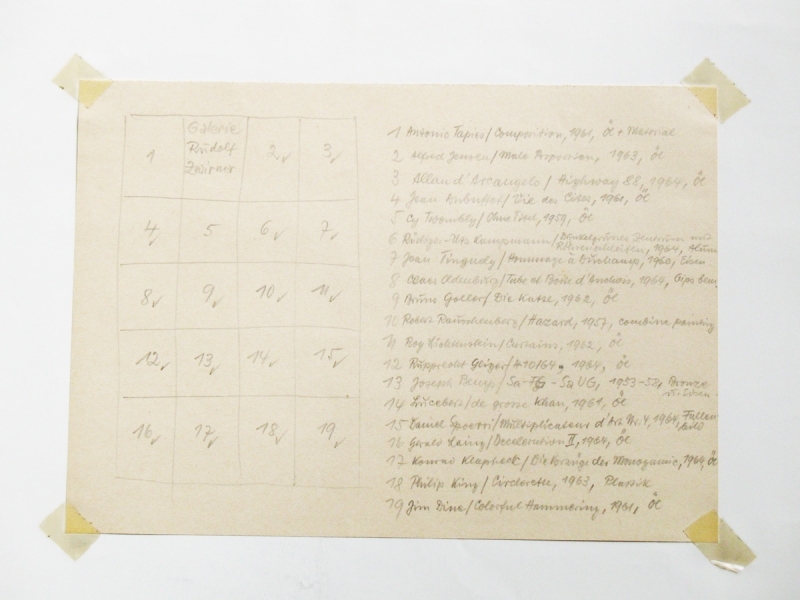 1
Galerie
Rudolf
Zwirner
2 ✓
3 ✓
4 ✓
5
6 ✓
7 ✓
8 ✓
9 ✓
10 ✓
11 ✓
12 ✓
13 ✓
14 ✓
15 ✓
16 ✓
17 ✓
18 ✓
19 ✓
1 Antonio Tapies / Composition, 1961, Öl + Material
2 Alfred Jensen / Male Proportion, 1963, Öl
3 Allan d'Arcangelo / Highway 88, 1964, Öl
4 Jean Dubuffet / Vie des Cites, 1961, Öl
5 Cy Twombly / Ohne Titel, 1959, Öl
6 Rüdiger-Utz Kampmann / Dunkelgrünes Zentrum mit
1964, Alum
7 Jean Tinguely / Hommage à Duchamp, 1960, Eisen
8 Claes Oldenburg / Tube et Boite d'Anchois, 1964, Gips bem.
9 Bruno Goller / Die Katze, 1962, Öl
10 Robert Rauschenberg / Hazard, 1957, combine painting
11 Roy Lichtenstein / Curtains, 1962, Öl
12 Rupprecht Geiger / 410/64, 1964, Öl
13 Joseph Beuys / SåFG - SåUG, 1953-58, Bronze
u. Eisen
14 Lucebert / de grosse Khan, 1961, Öl
15 Daniel Spoerri / Multiplicateur d'Art Nr. 4, 1964, Fallen
bild
16 Gerald Laing / Deceleration II, 1964, Öl
17 Konrad Klapheck / Die Vorzüge der Monogamie, 1964, Öl
18 Philip King / Circlerette, 1963, Plastik
19 Jim Dine / Colorful Hammering, 1961, Öl